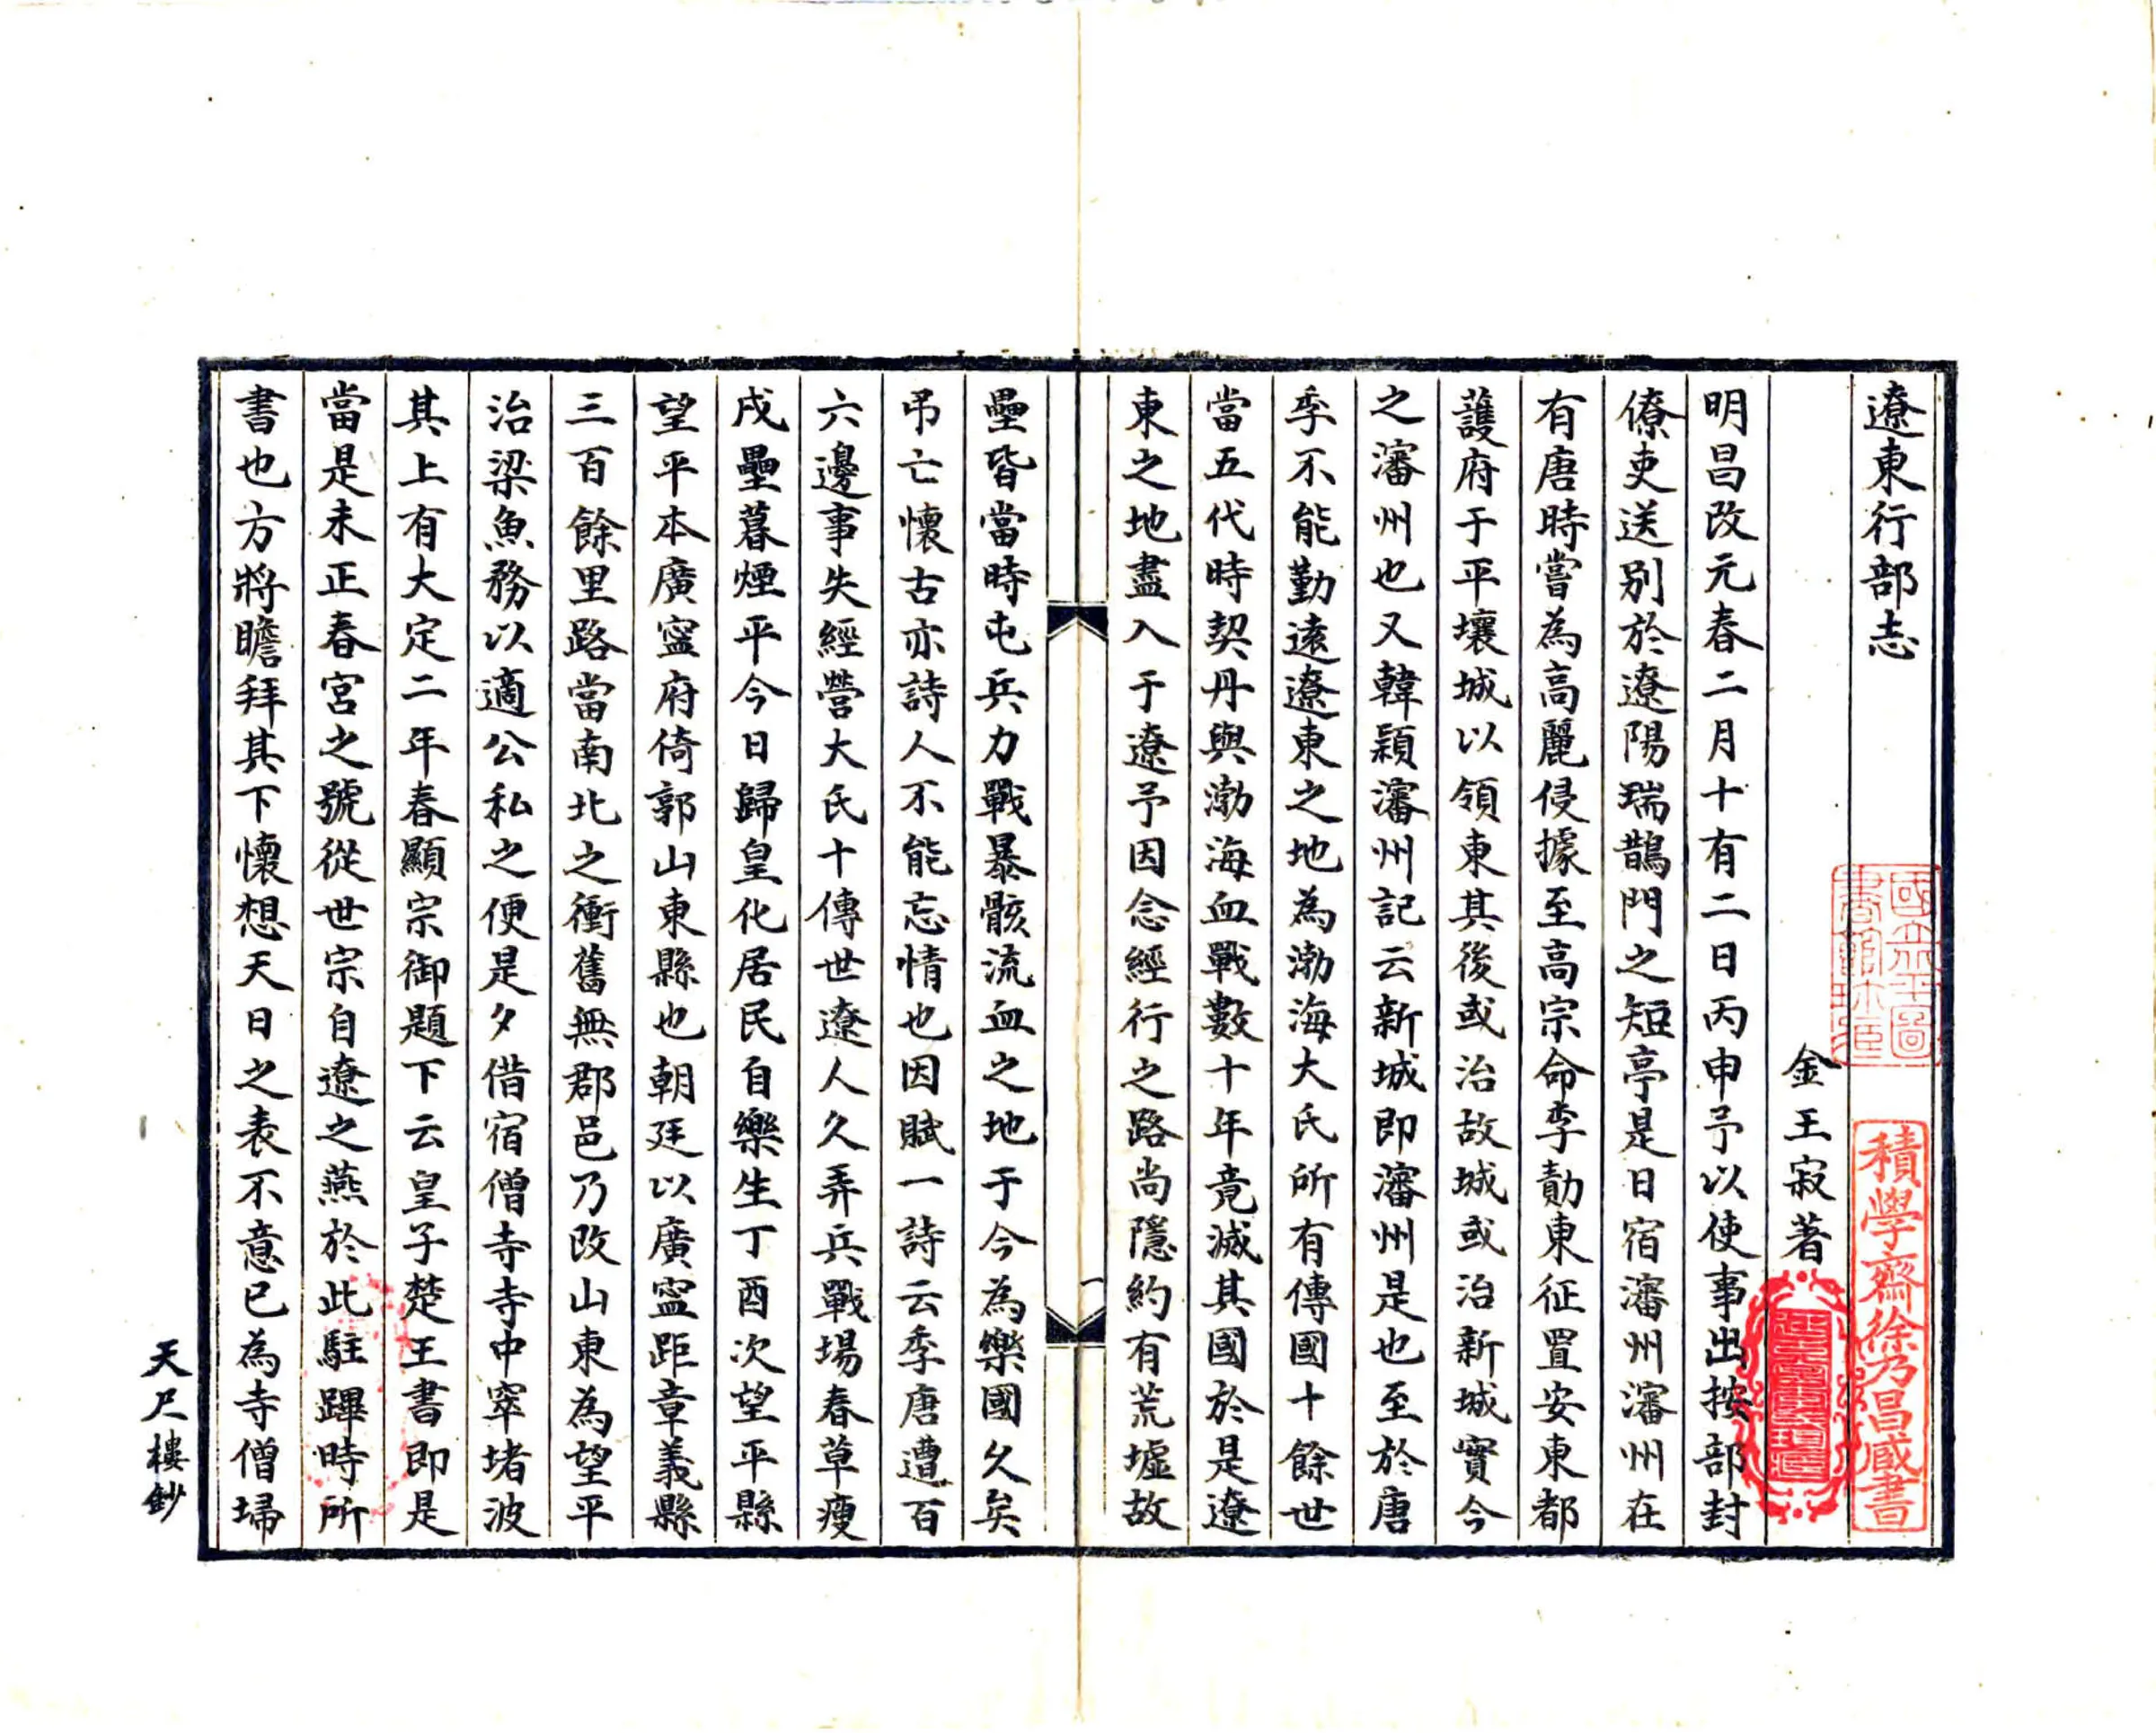 遼東行部志
金王寂著
明昌改元春二月十有二日丙申予以使事出按部封
僚吏送别於遼陽瑞鵲門之短亭是日宿瀋州瀋州在
有唐時嘗為高麗侵據至高宗命李勣東征置安東都
護府于平壤城以領東其後或治故城或治新城實今
之瀋州也又韓穎瀋州記云新城即瀋州是也至於唐
季不能勤遠遼東之地為渤海大氏所有傳國十餘世
當五代時契丹與渤海血戰數十年竟滅其國於是遼
東之地盡入于遼予因念經行之路尚隱約有荒墟故
壘皆當時屯兵力戰暴骸流血之地于今為樂國久矣
弔亡懷古亦詩人不能忘情也因賦一詩云季唐遭百
六邊事失經營大氏十傳世遼人久弄兵戰場春草瘦
戍壘暮煙平今日歸皇化居民自樂生丁酉次望平縣
望平本廣寧府倚郭山東縣也朝廷以廣寧距章義縣
三百餘里路當南北之衝舊無郡邑乃改山東為望平
治梁魚務以適公私之便是夕借宿僧寺寺中窣堵波
其上有大定二年春顯宗御題下云皇子楚王書即是
當是未正春宮之號從世宗自遼之燕於此駐蹕時所
書也方將瞻拜其下懷想天日之表不意已為寺僧埽
一
天尺樓鈔
國立北平圖書館珍藏
積學齋徐乃昌藏書